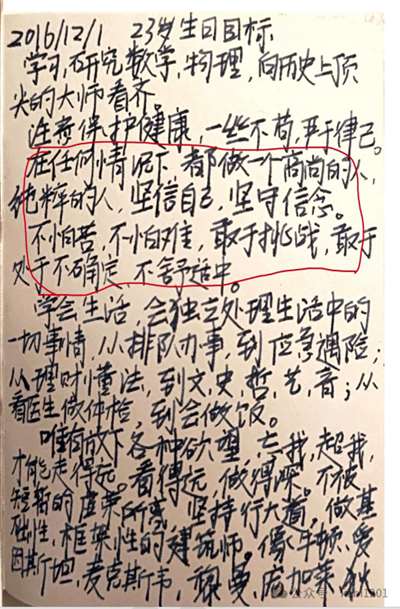 2016/12/1 23岁生日目标
学习,研究数学,物理,向历史上顶
尖的大师看齐。
注意保护健康,一丝不苟,严于律己。
在任何情况下都做一个高尚的人,
纯粹的人,坚信自己,坚守信念。
不怕苦,不怕难,敢于挑战,敢于
处于不确定,不舒适中。
学会生活,会独立处理生活中的
一切事情,从排队办事,到应急遇险;
从理财懂法,到文,史,哲,艺,音;从
看医生做体检,到会做饭。
唯有放下各种欲望,忘我,超我,
才能走得远。看得远,做得深。不被
短暂的虚荣所惑,坚持行大道,做基
础性,框架性的建筑师。像牛顿,爱
因斯坦,麦克斯韦,黎曼,庞加莱,狄
公众号